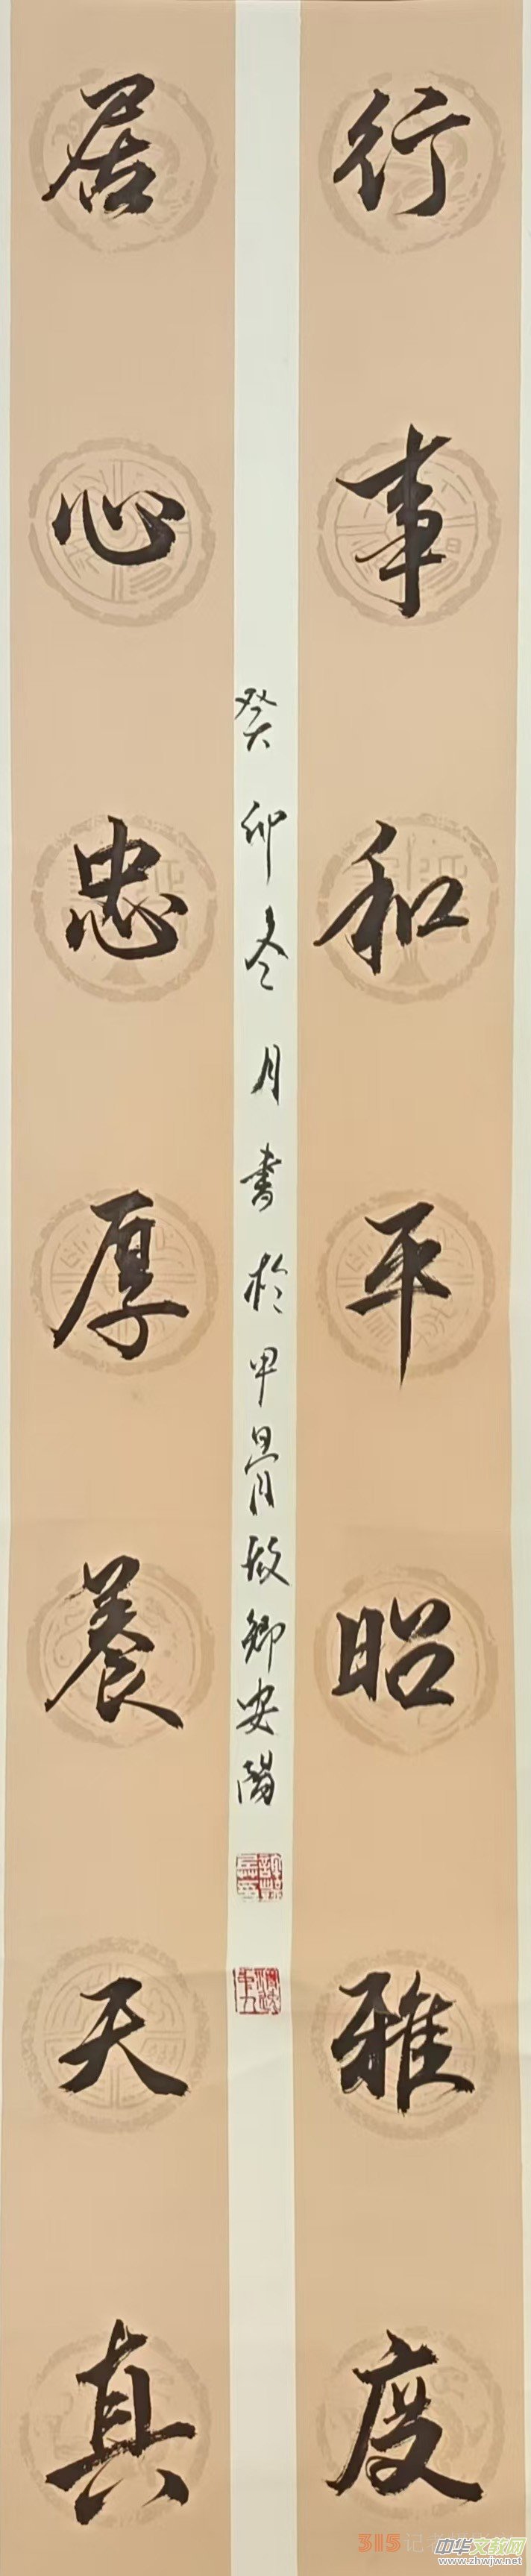 行事和平昭雅度
居心忠厚養天真
癸卯冬月書於甲骨故鄉安陽
315记者
中华文教网
www.zhwjw.net